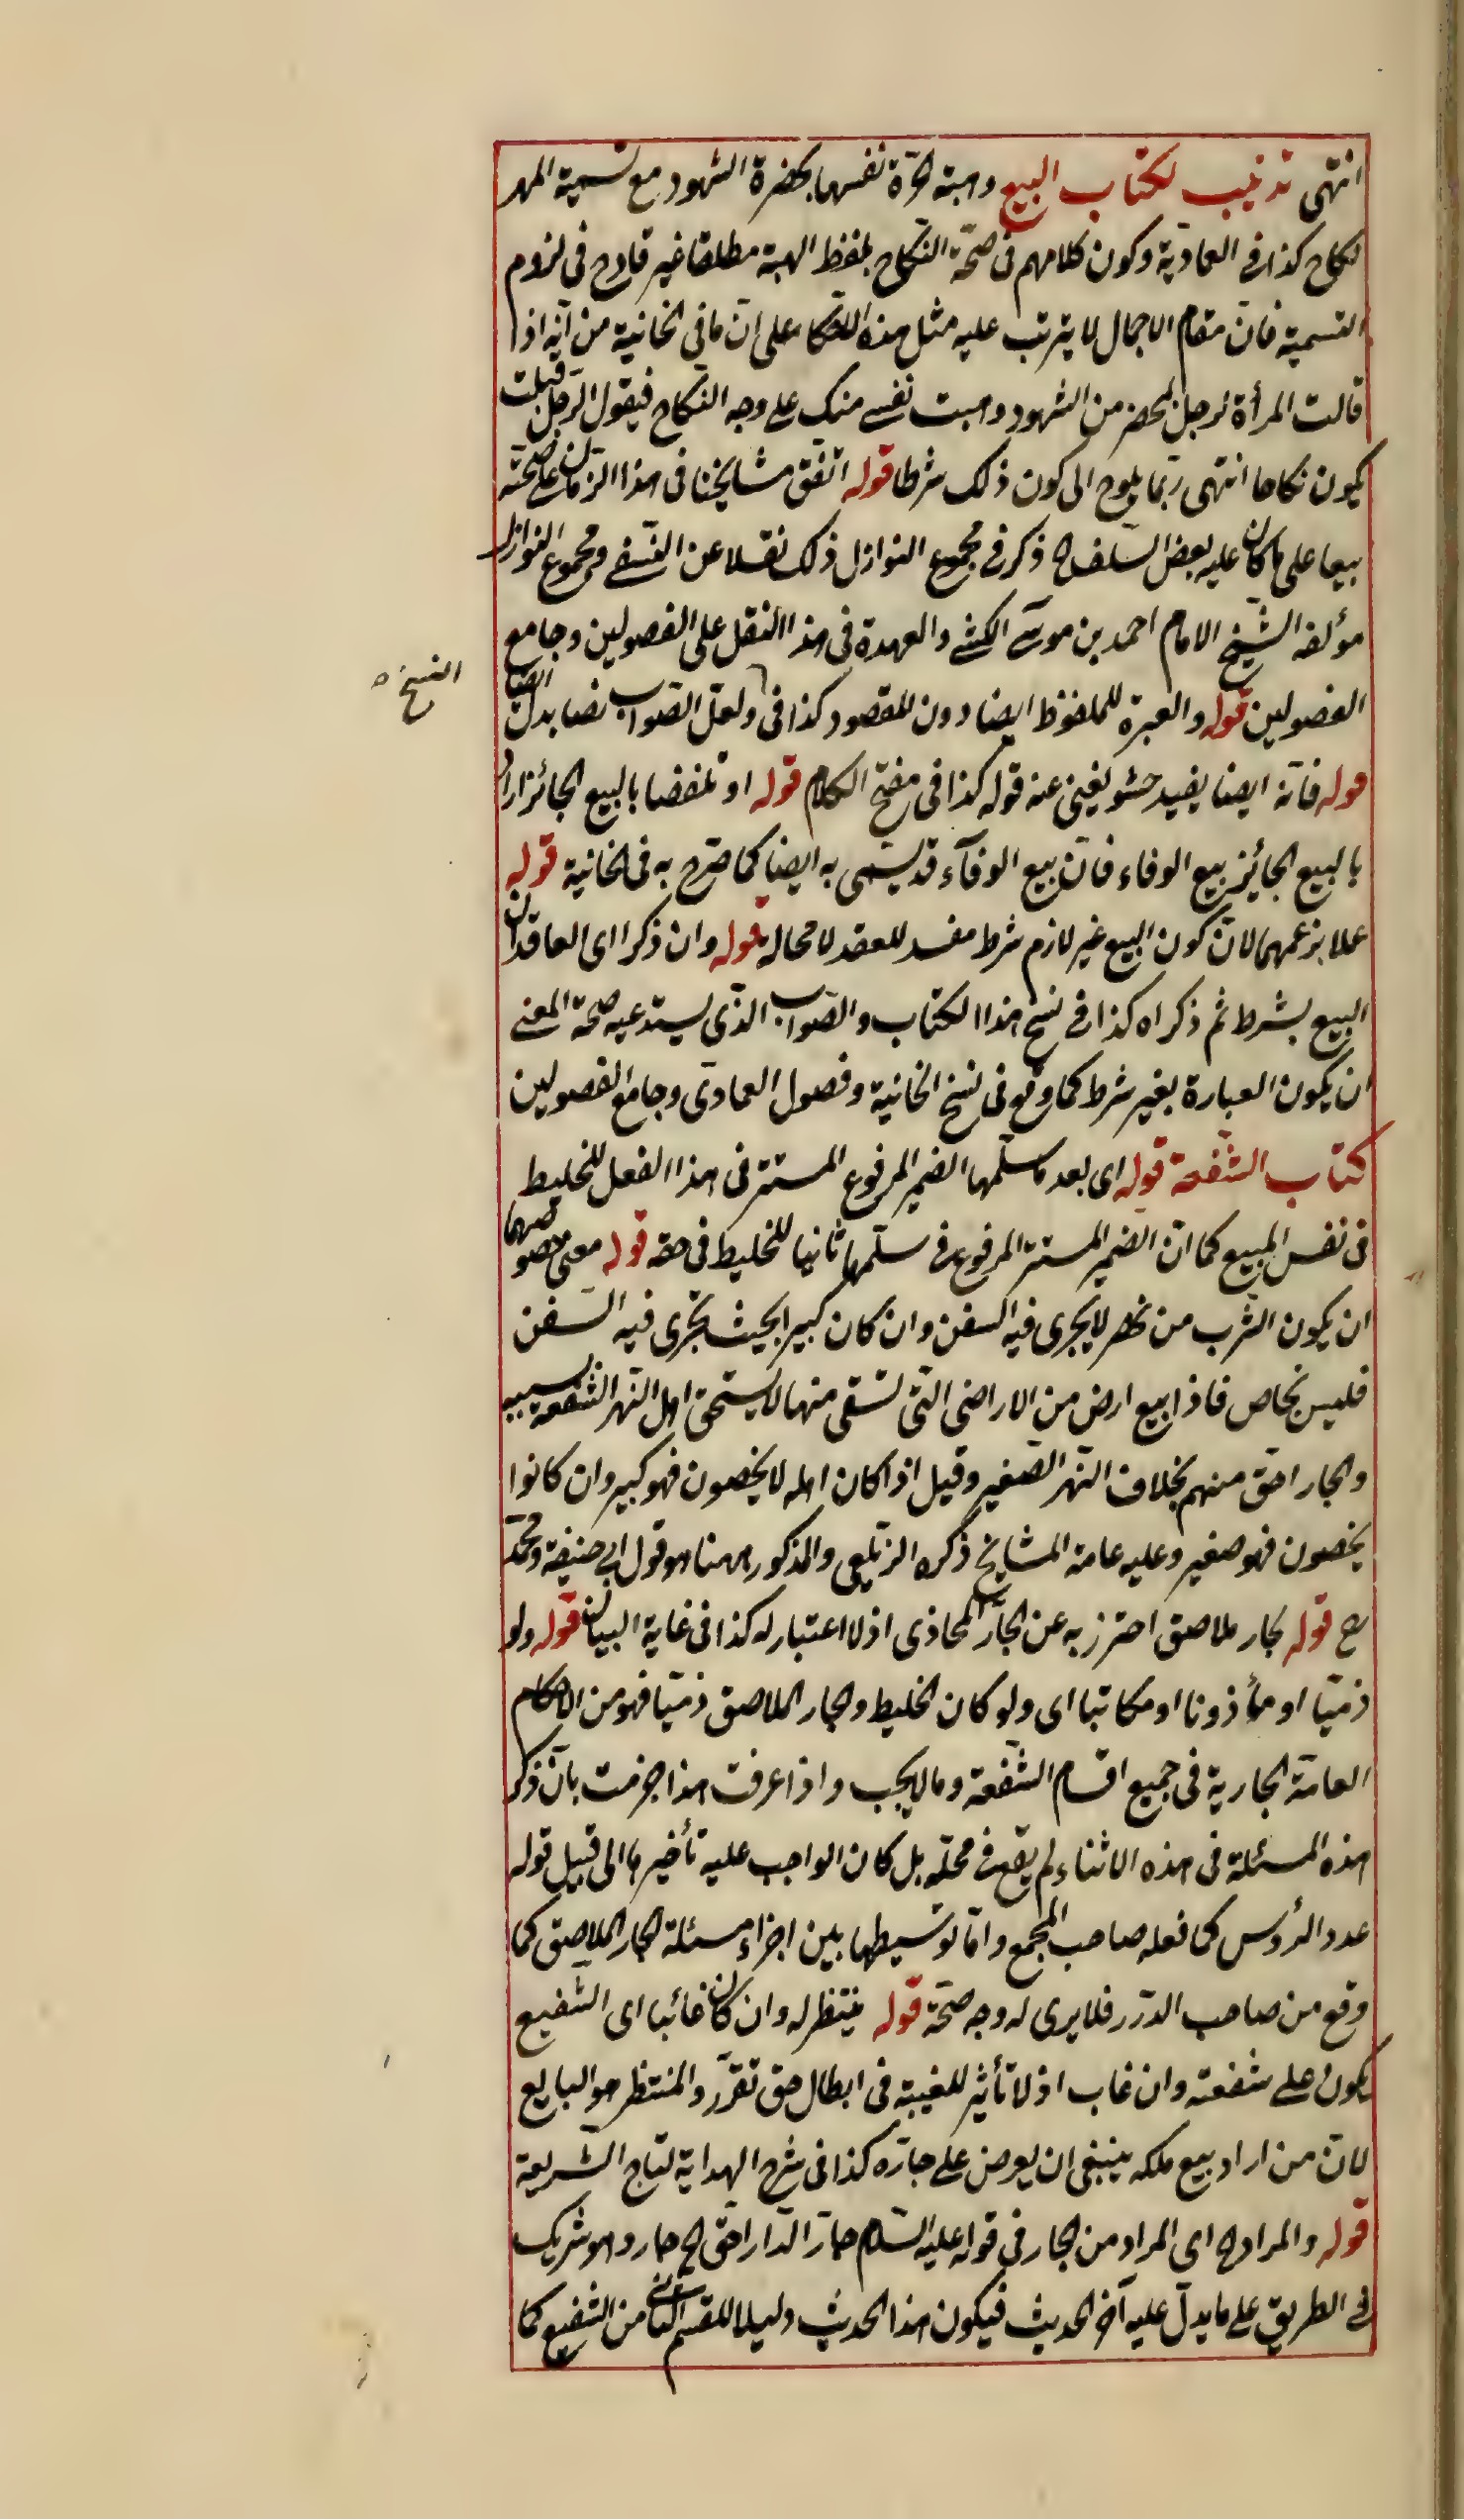 انتهى تذنيب لكتاب البيع وهبة الحرة نفسها بحضرة الشهود مع تسمية المهر
نكاح كذا في العمادية وكون كلامهم في صحة النكاح بلفظ الهبة مطلقا غير قادح في لزوم
التسمية فان مقام الاجمال لا يترتب عليه مثل هذه الاحكام على ان ما في الخانية من انه اذا
قالت المرأة لرجل بمحضر من الشهود وهبت نفسي منك على وجه النكاح فيقول الرجل قبلت
يكون نكاحا انتهى ربما يلوح الى كون ذلك شرطا قوله اتفق مشايخنا في هذا الزمان على صحته
بيعا على ما كان عليه بعض السلف اه ذكر في مجموع النوازل ذلك نقلا عن النسفي ومجموع النوازل
مؤلفه الشيخ الامام احمد بن موسى الكشي والعهدة في هذا النقل على الفصولين وجامع
الفصولين قوله والعبرة للملفوظ ايضا دون المقصود كذا في ولعل الصواب نصا بدل ايضا
النسخ
قوله فانه ايضا يفيد حشو يغني عنه قوله كذا في مفتح الكلام قوله او تلفظا بالبيع الجائز اراد
بالبيع الجائز بيع الوفاء فان بيع الوفآء قد يسمى به ايضا كما صرح به في الخانية قوله
عملا بزعمهما لان كون البيع غير لازم شرط مفسد للعقد لا محالة قوله وان ذكرا اى العاقدان
البيع بشرط ثم ذكراه كذا في نسخ هذا الكتاب والصواب الذى يستدعيه صحة المعنى
ان يكون العبارة بغير شرط كما وقع في نسخ الخانية وفصول العمادى وجامع الفصولين
كتاب الشفعة قوله اى بعد ما سلمها الضمير المرفوع المستتر في هذا الفعل للخليط
في نفس المبيع كما ان الضمير المستتر المرفوع في سلمها ثانيا للخليط في حقه قوله معنى خصوصهما
ان يكون الشرب من نهر لا يجرى فيه السفن وان كان كبيرا بحيث تجرى فيه السفن
فليس بخاص فاذا بيع ارض من الاراضى التى تسقى منها لا يستحق اهل النهر الشفعة بسببه
والجار احق منهم بخلاف النهر الصغير وقيل اذا كان اهله لا يحصون فهو كبير وان كانوا
يحصون فهو صغير وعليه عامة المشايخ ذكره الزيلعى والمذكور ههنا هو قول ابى حنيفة ومحمد
رح قوله لجار ملاصق احترز به عن الجار المحاذى اذ لا اعتبار له كذا في غاية البيان قوله ولو
ذميا او مأذونا او مكاتبا اى ولو كان الخليط والجار الملاصق ذميا فهو من الاحكام
العامة الجارية في جميع اقسام الشفعة وما لا يجب واذا عرفت هذا جزمت بان ذكر
هذه المسئلة في هذه الاثناء لم يقع في محله بل كان الواجب عليه تأخيرها الى قبيل قوله
عدد الرؤس كما فعله صاحب المجمع واما توسيطها بين اجزاء مسئلة الجار الملاصق كما
وقع من صاحب الدرر فلا يرى له وجه صحة قوله ينتظر له وان كان غائبا اى الشفيع
يكون على شفعته وان غاب اذ لا تأثير للغيبة في ابطال حق تقرر والمنتظر هو البايع
لان من اراد بيع ملكه ينبغى ان يعرض على جاره كذا في شرح الهداية لتاج الشريعة
قوله والمراد اه اى المراد من الجار في قوله عليه السلام جار الدار احق الخ جار وهو شريك
في الطريق على ما يدل عليه آخر الحديث فيكون هذا الحديث دليلا للقسم الثانى من الشفيع كما